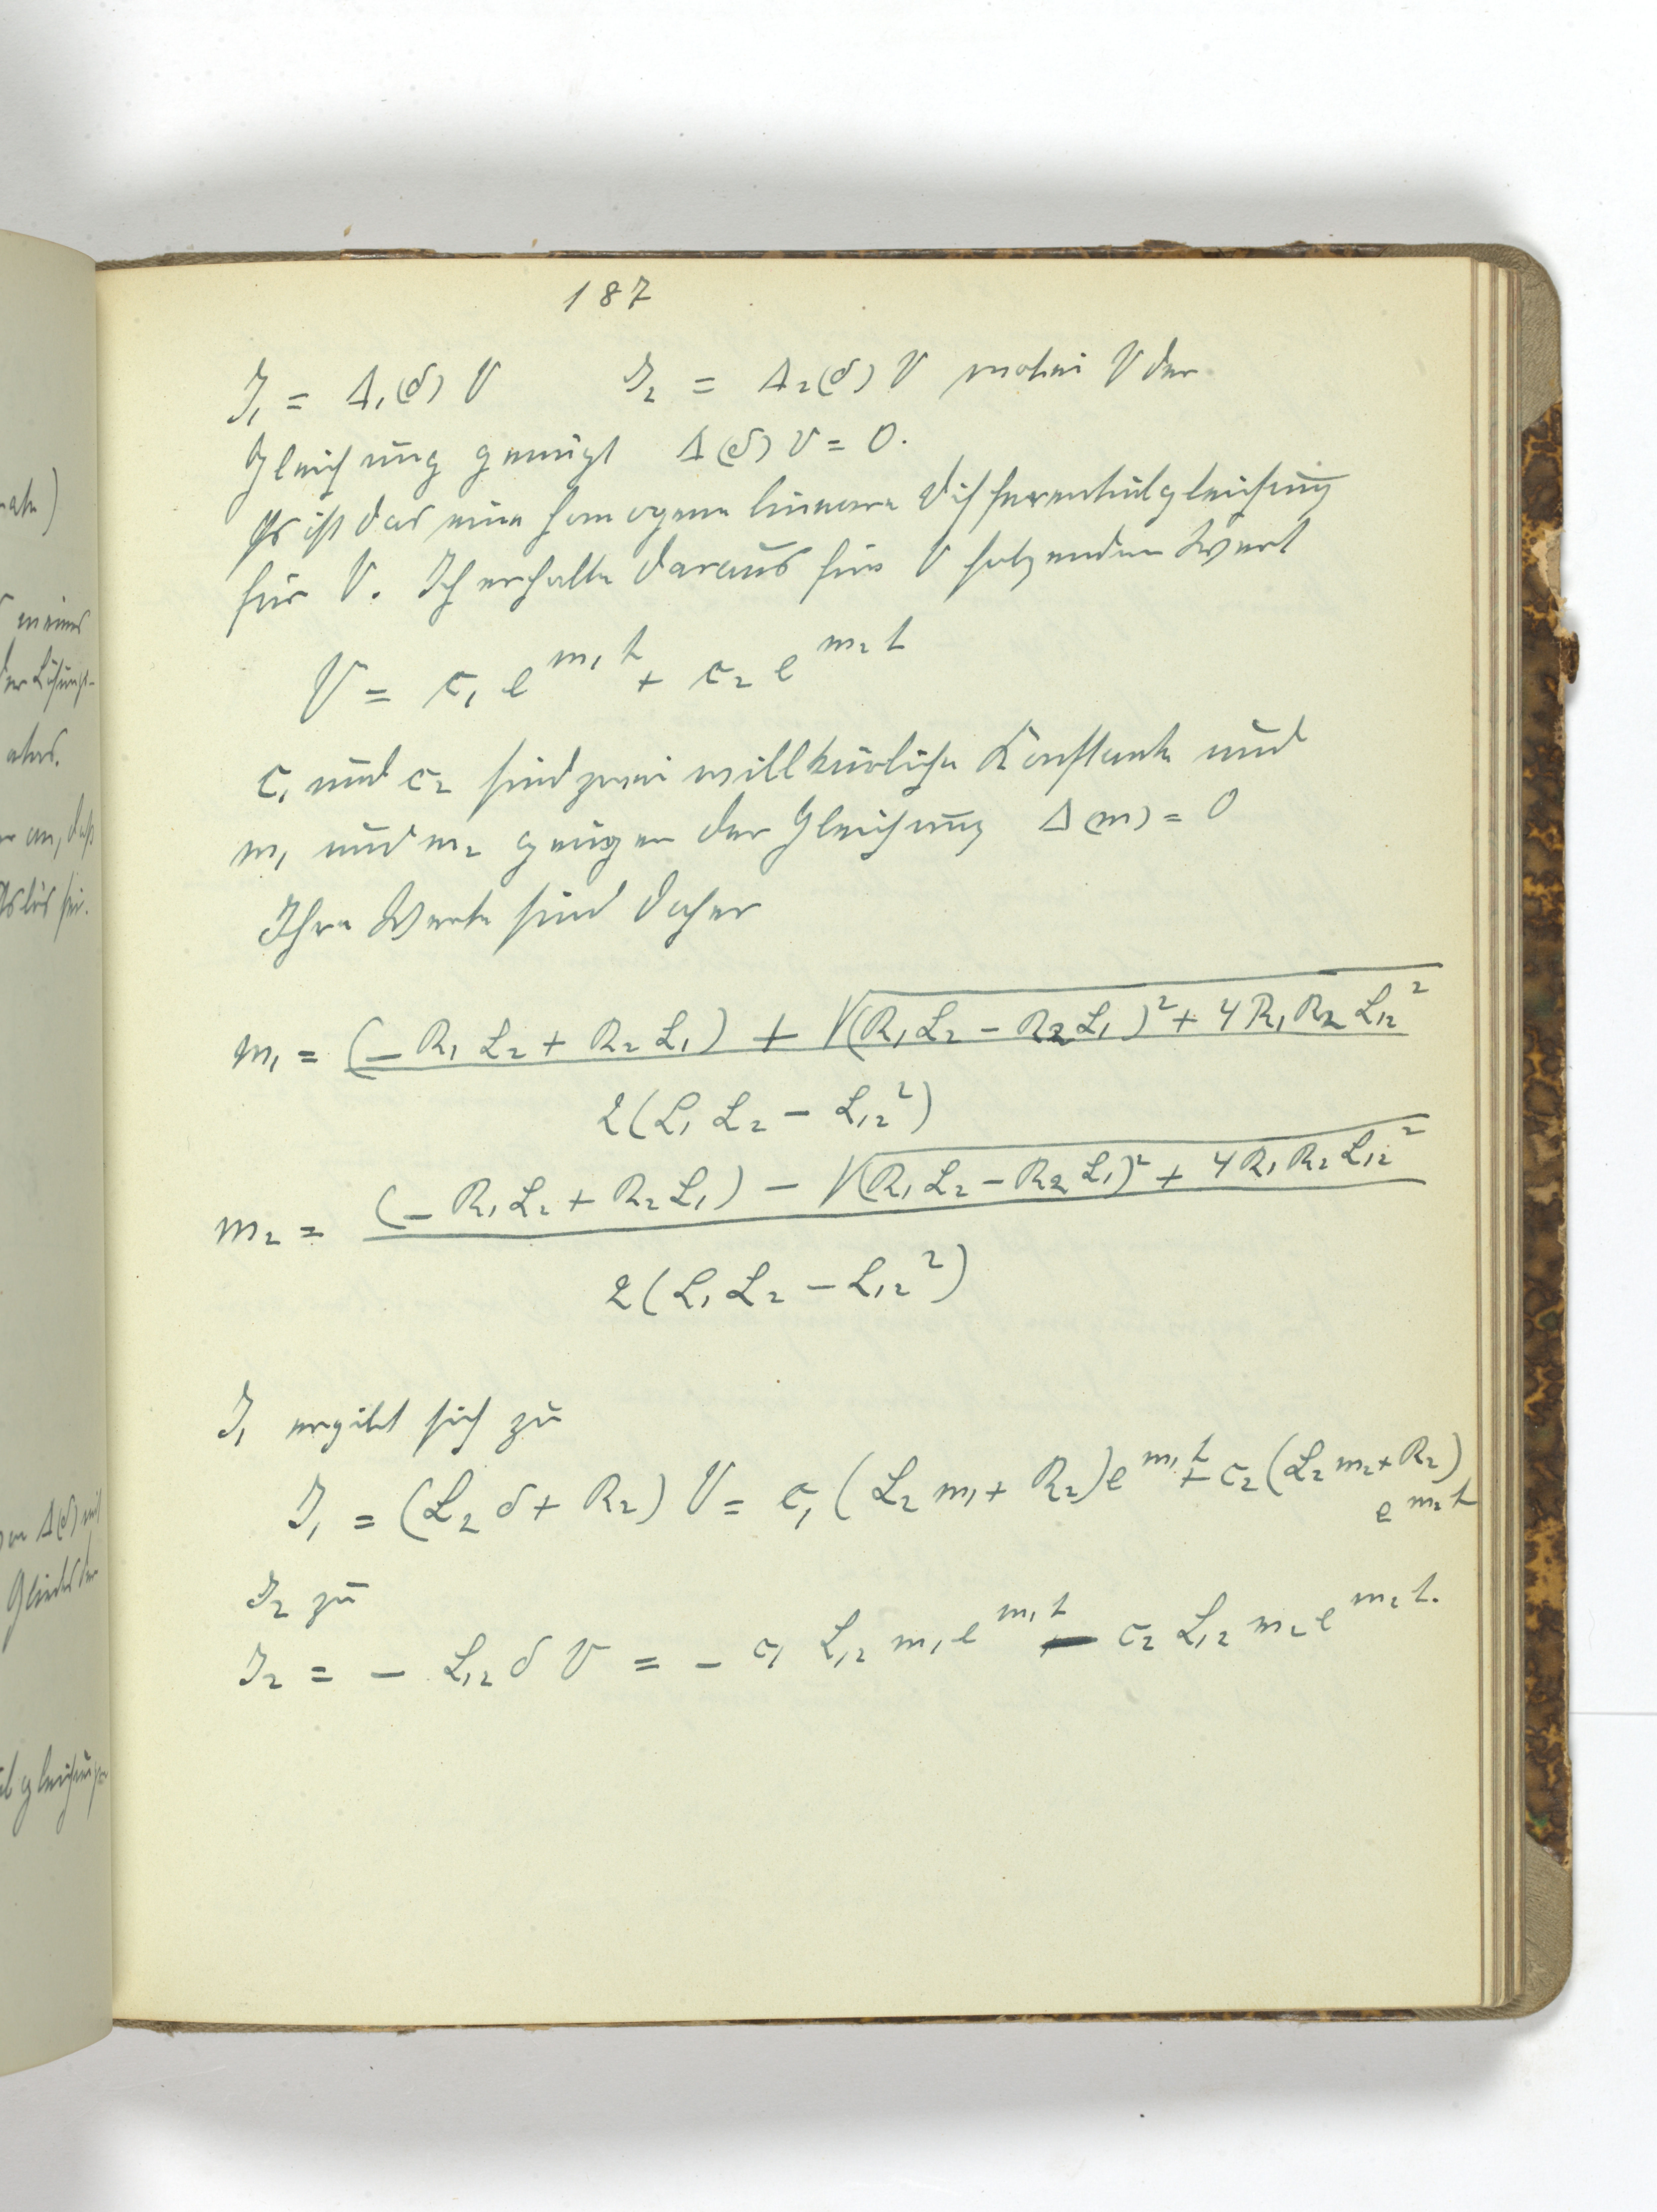 187
J₁ = Δ₁(δ) V J₂ = Δ₂(δ) V wobei V der
Gleichung genügt Δ(δ) V = 0.
Es ist das eine homogene lineare Differentialgleichung
für V. Ich erhalte daraus für V folgenden Wert
V = c₁ e^{m₁ t} + c₂ e^{m₂ t}
c₁ und c₂ sind zwei willkürliche Konstante und
m₁ und m₂ genügen der Gleichung Δ(m) = 0
Ihre Werte sind daher
m₁ = (− R₁ L₂ + R₂ L₁) + √(R₁ L₂ − R₂ L₁)² + 4 R₁ R₂ L₁₂²
2(L₁ L₂ − L₁₂²)
m₂ = (− R₁ L₂ + R₂ L₁) − √(R₁ L₂ − R₂ L₁)² + 4 R₁ R₂ L₁₂²
2(L₁ L₂ − L₁₂²)
J₁ ergibt sich zu
J₁ = (L₂ δ + R₂) V = c₁ (L₂ m₁ + R₂) e^{m₁ t} + c₂ (L₂ m₂ + R₂)
e^{m₂ t}
J₂ zu
J₂ = − L₁₂ δ V = − c₁ L₁₂ m₁ e^{m₁ t} − c₂ L₁₂ m₂ e^{m₂ t}.